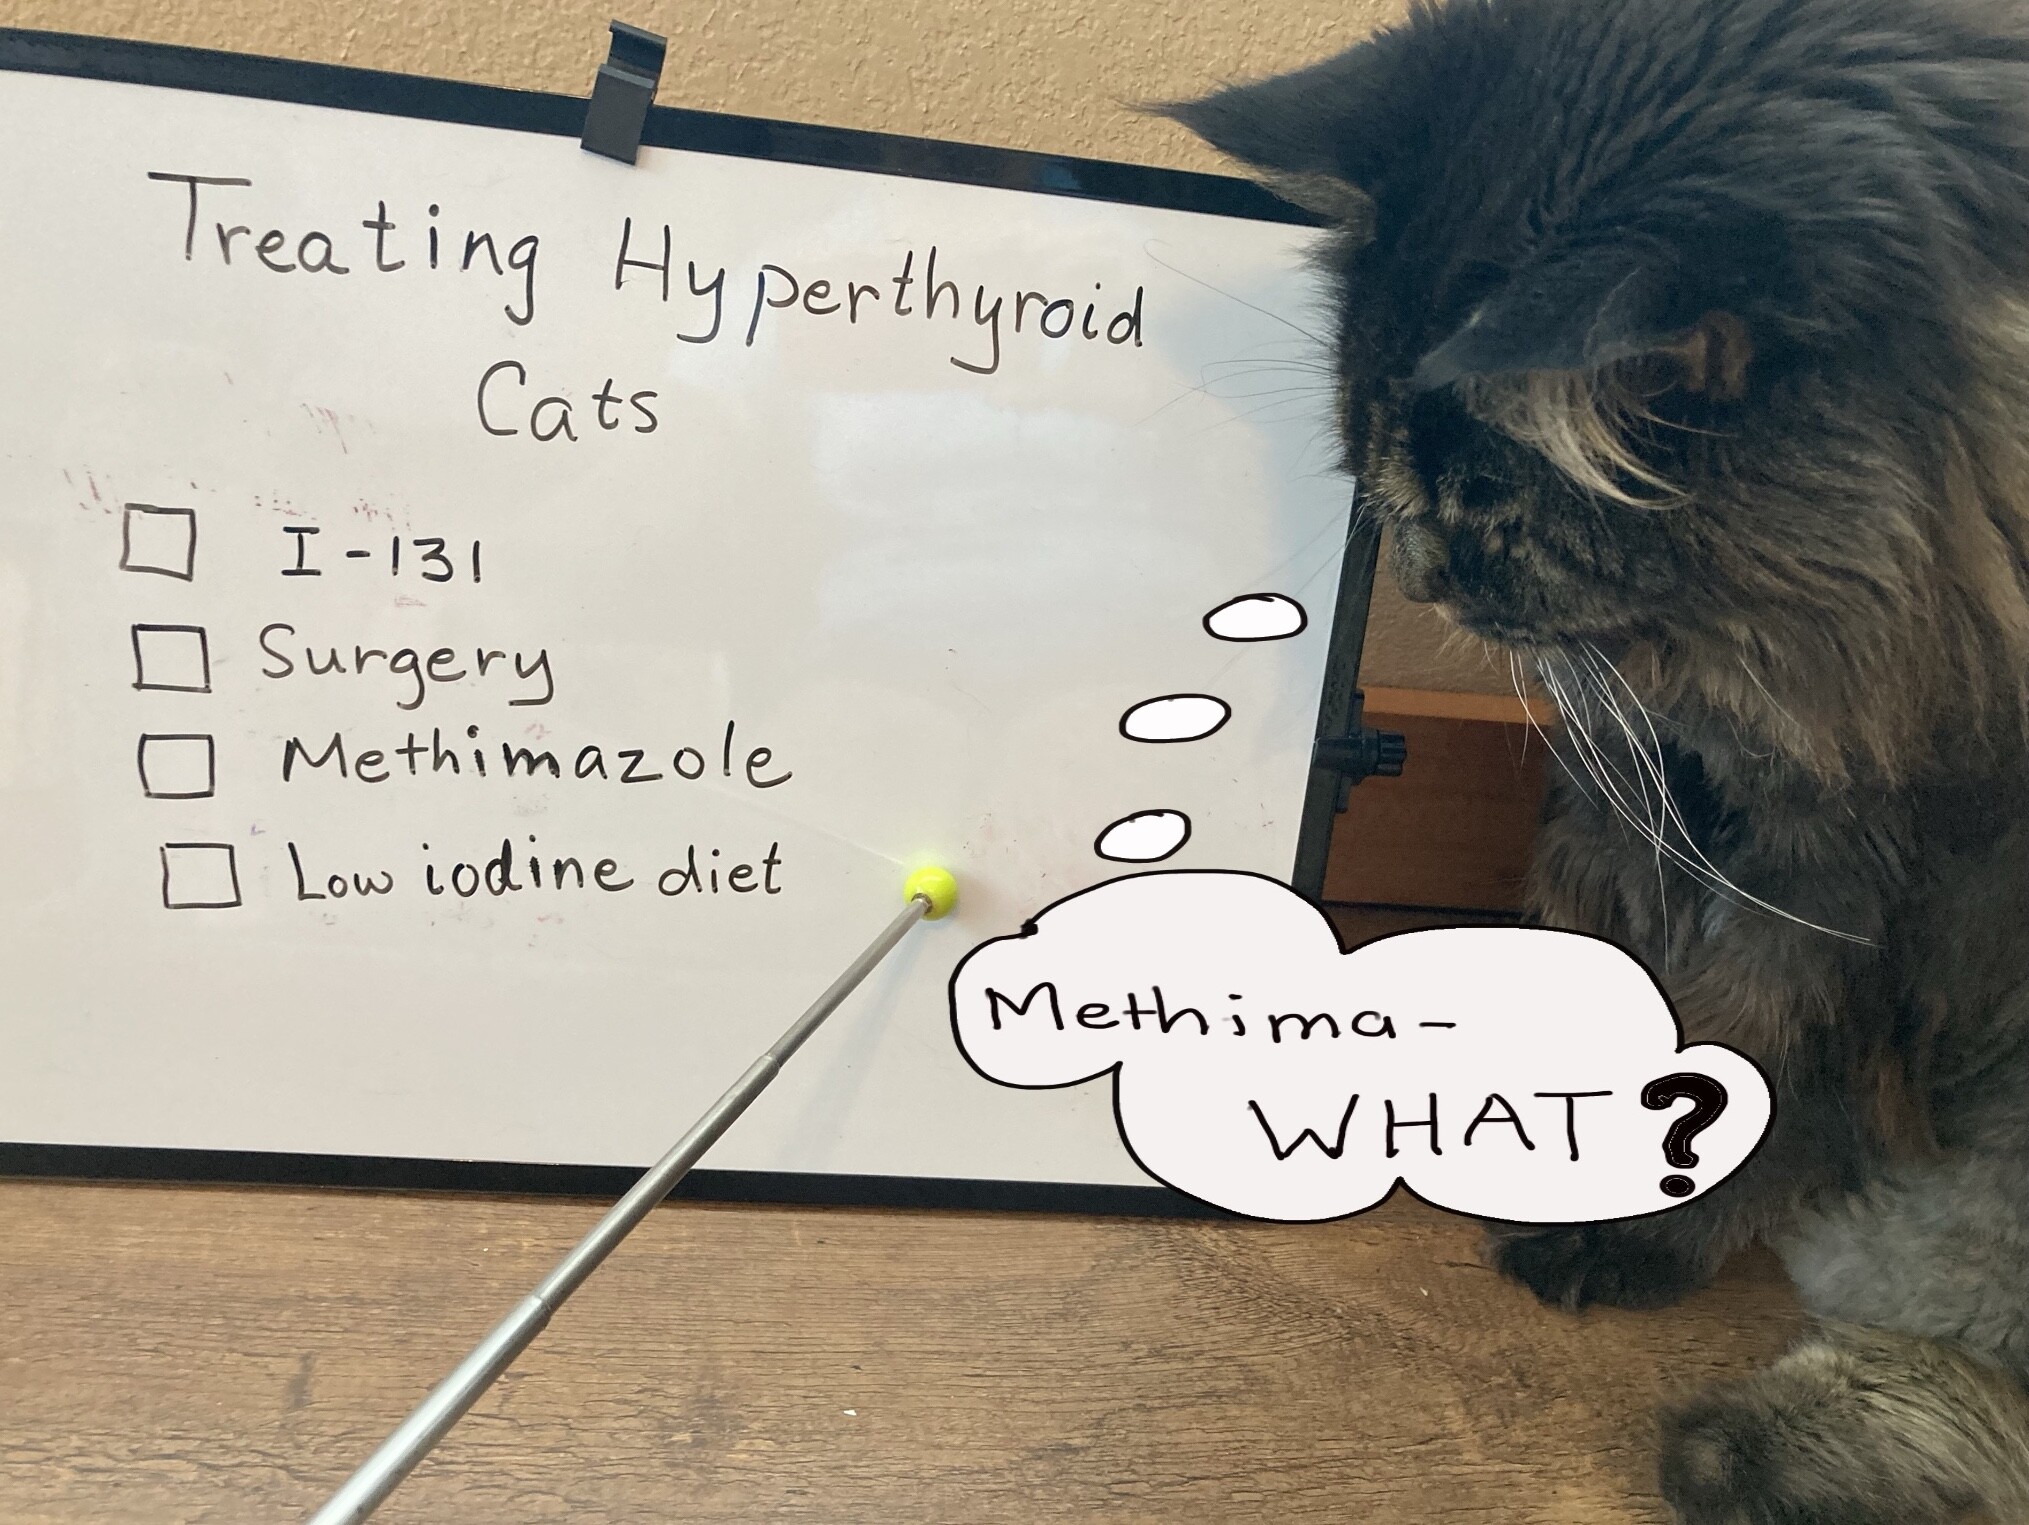 Treating Hyperthyroid
Cats
I-131
Surgery
Methimazole
Low iodine diet
Methima-
WHAT?